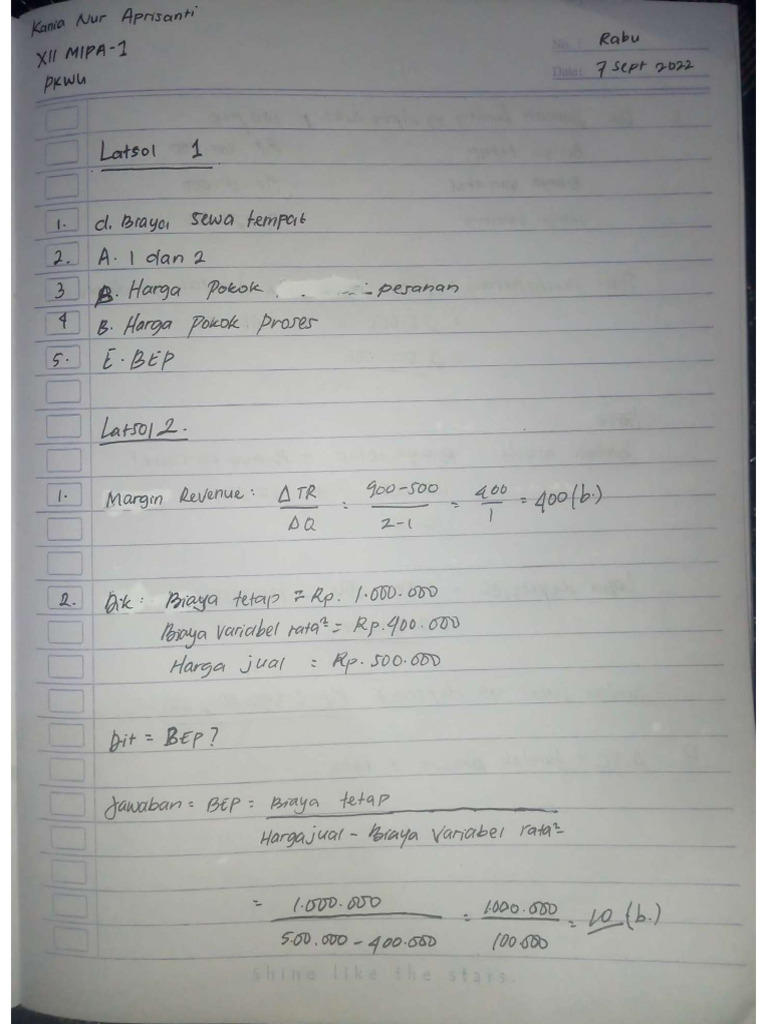 Kania Nur Aprisanti
XII MIPA-1
PKWU
No. : Rabu
Date: 7 Sept 2022
Latsol 1
1. d. Biaya sewa tempat
2. A. 1 dan 2
3 B. Harga Pokok pesanan
4 B. Harga Pokok Proses
5. E. BEP
Latsol 2.
1. Margin Revenue : ΔTR/ΔQ = 900-500/2-1 = 400/1 = 400 (b.)
2. Dik : Biaya tetap = Rp. 1.000.000
Biaya variabel rata² = Rp.400.000
Harga jual = Rp.500.000
Dit = BEP?
Jawaban = BEP = Biaya tetap
Harga jual - Biaya variabel rata²
= 1.000.000/500.000 - 400.000 = 1000.000/100.000 = 10 (b.)
shine like the stars.